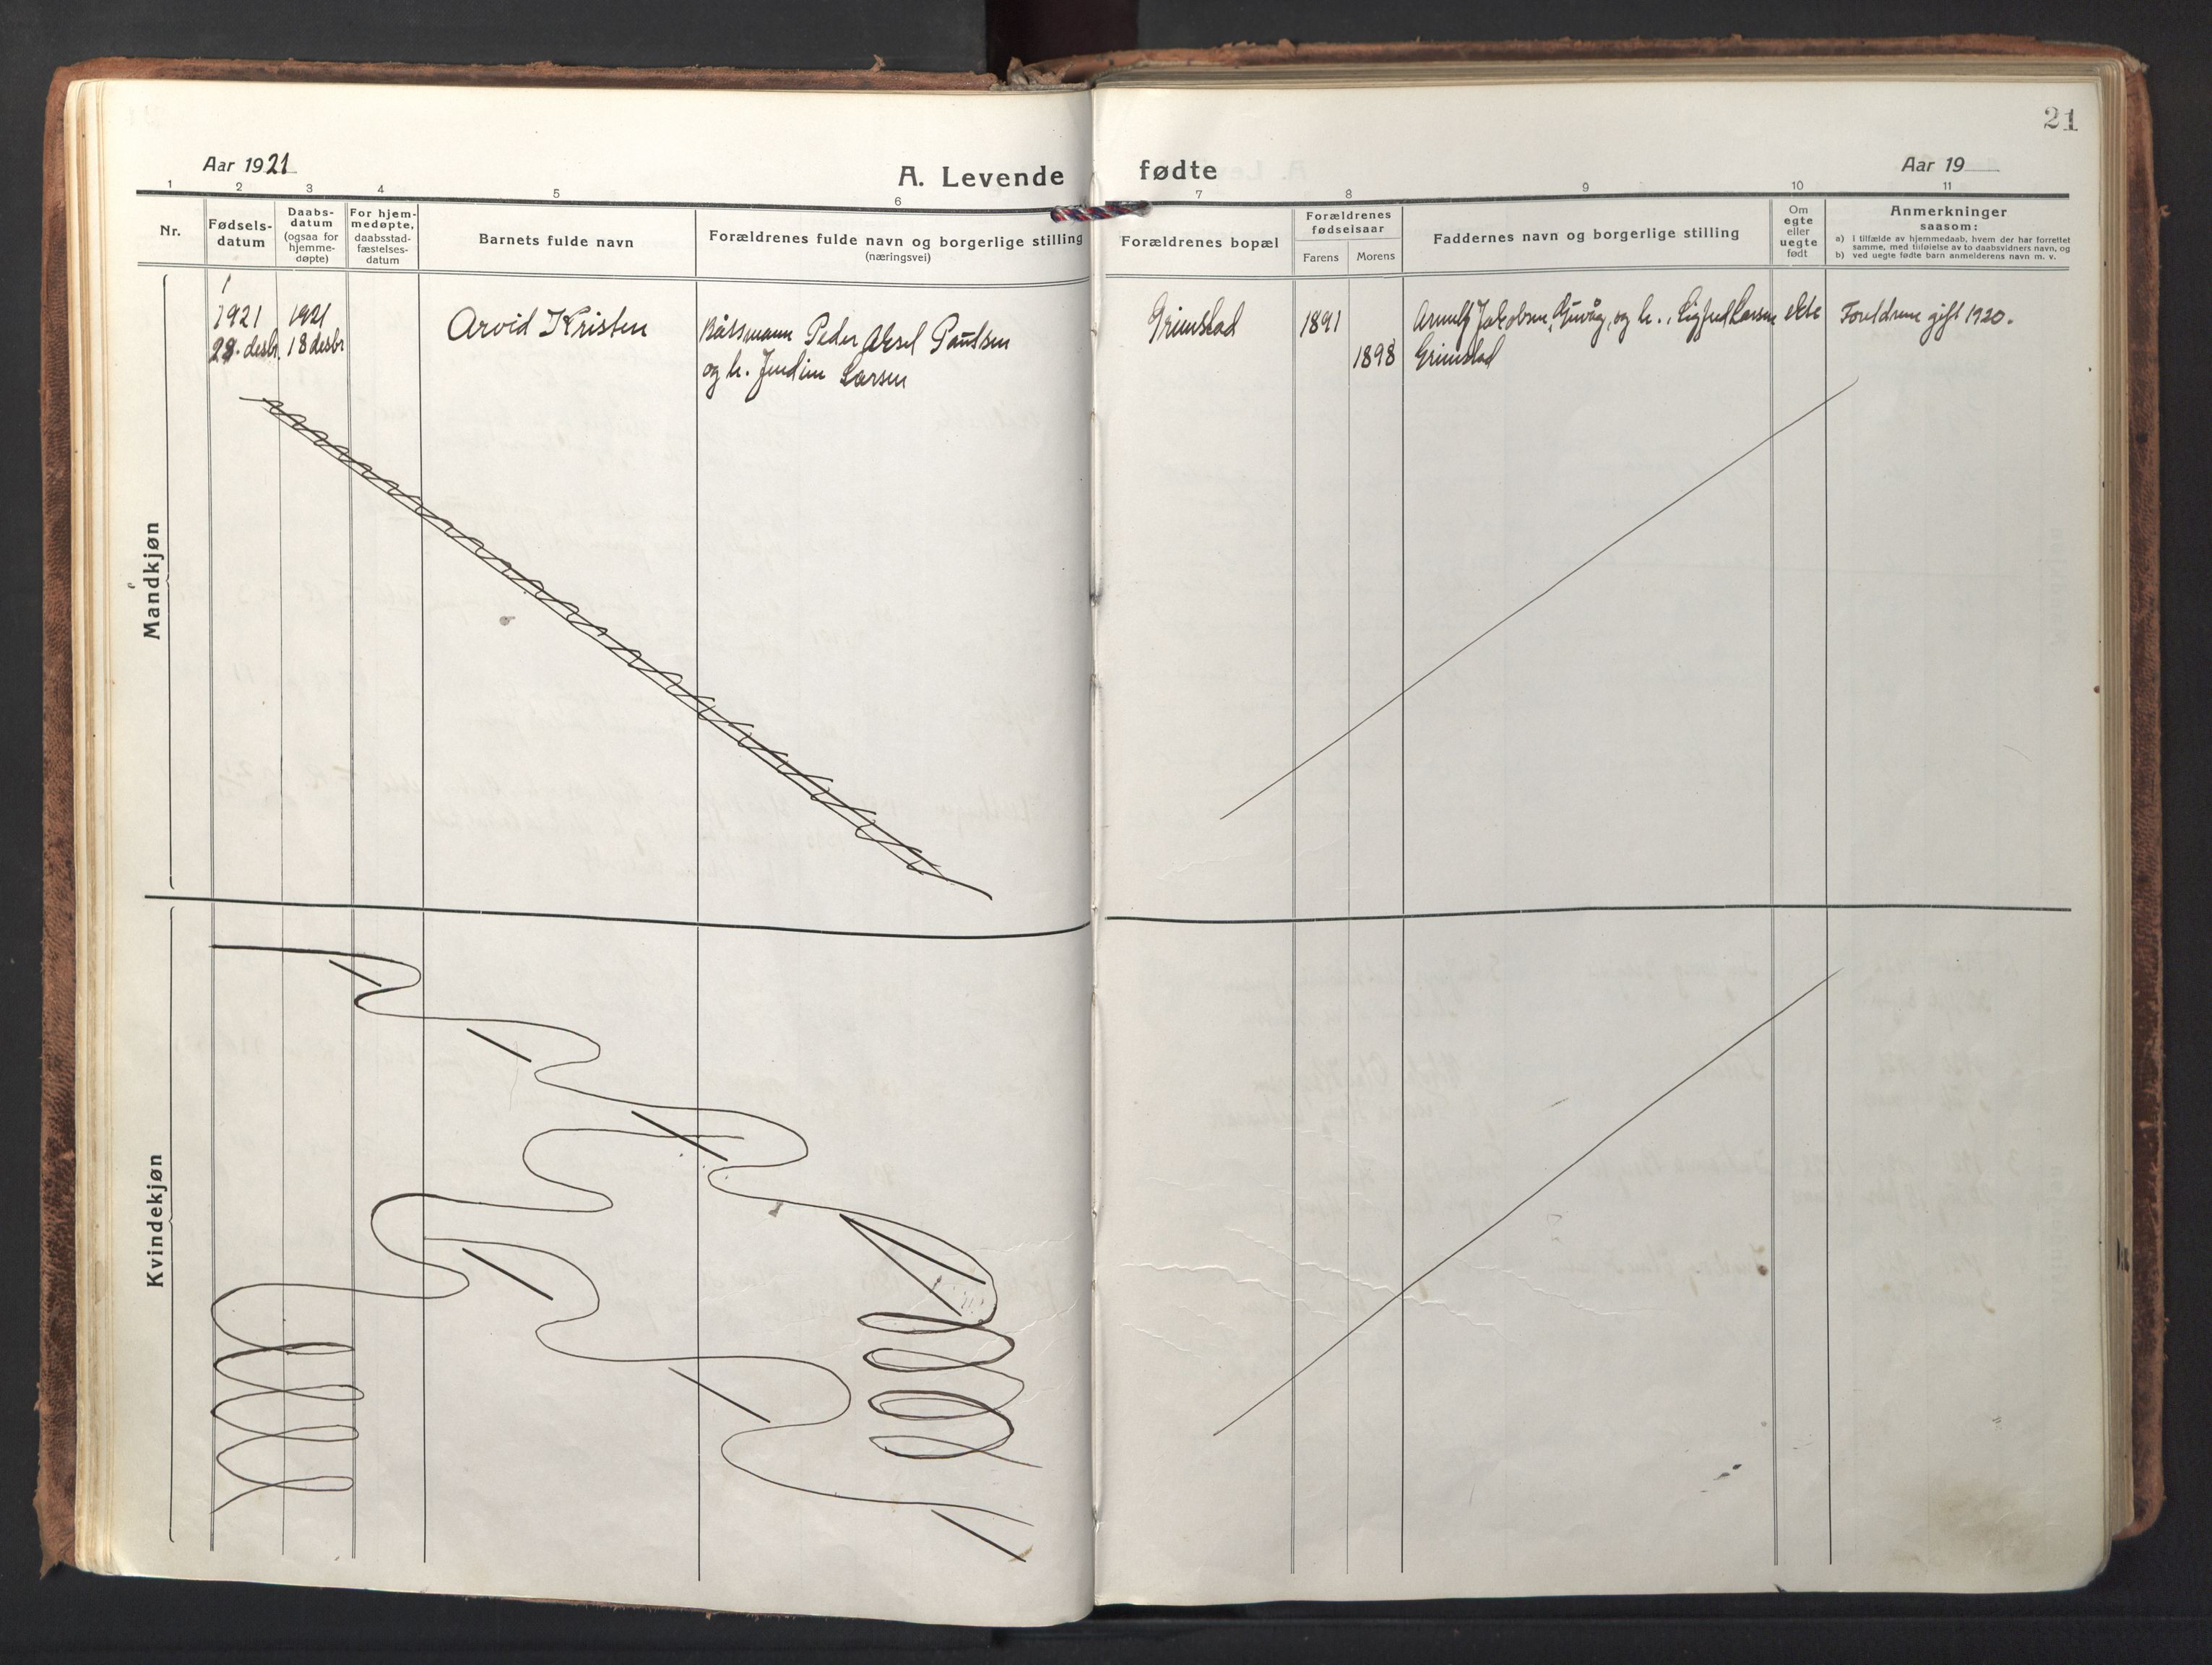 21
Aar 1921
A. Levende fødte
Aar 19
1 2 3 4 5 6 7 8 9 10 11
Nr.
Fødsels-
datum
Daabs-
datum
(ogsaa for
hjemme-
døpte)
For hjem-
medøpte,
daabsstad-
fæstelses-
datum
Barnets fulde navn
Forældrenes fulde navn og borgerlige stilling
(næringsvei)
Forældrenes bopæl
Forældrenes
fødselsaar
Farens Morens
Faddernes navn og borgerlige stilling
Om
egte
eller
uegte
født
Anmerkninger
saasom:
a) i tilfælde av hjemmedaab, hvem der har forrettet
samme, med tilføielse av to daabsvidners navn, og
b) ved uegte fødte barn anmelderens navn m. v.
Mandkjøn
1921 1921 Arvid Kristen Båtsmann Peder Aksel Paulsen Grimstad 1891 Jakobsen, og h., Larsen ekte Foreldrene gift 1920.
desbr 18 desbr og h. Larsen 1898 Grimstad
Kvindekjøn